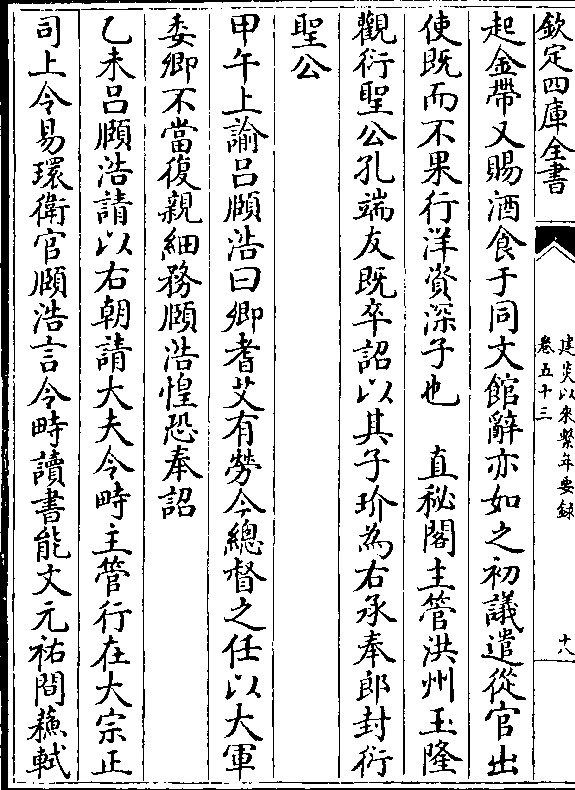 欽定四庫全書
建炎以來繫年要錄
卷五十三
十八
起金帶又賜酒食于同文館辭亦如之初議遣從官出
使既而不果行洋資深子也　直秘閣主管洪州玉隆
觀衍聖公孔端友既卒詔以其子玠為右承奉郎封衍
聖公
甲午上諭呂頤浩曰卿耆艾有勞今總督之任以大軍
委卿不當復親細務頤浩惶恐奉詔
乙未呂頤浩請以右朝請大夫令畤主管行在大宗正
司上令易環衛官頤浩言令畤讀書能文元祐間蘇軾